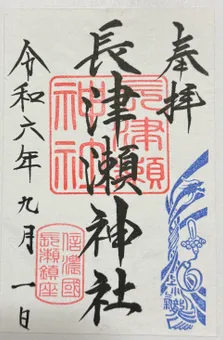 奉拝
長津瀬神社
長津瀬神社
令和六年九月一日
信濃國
長瀬鎮座